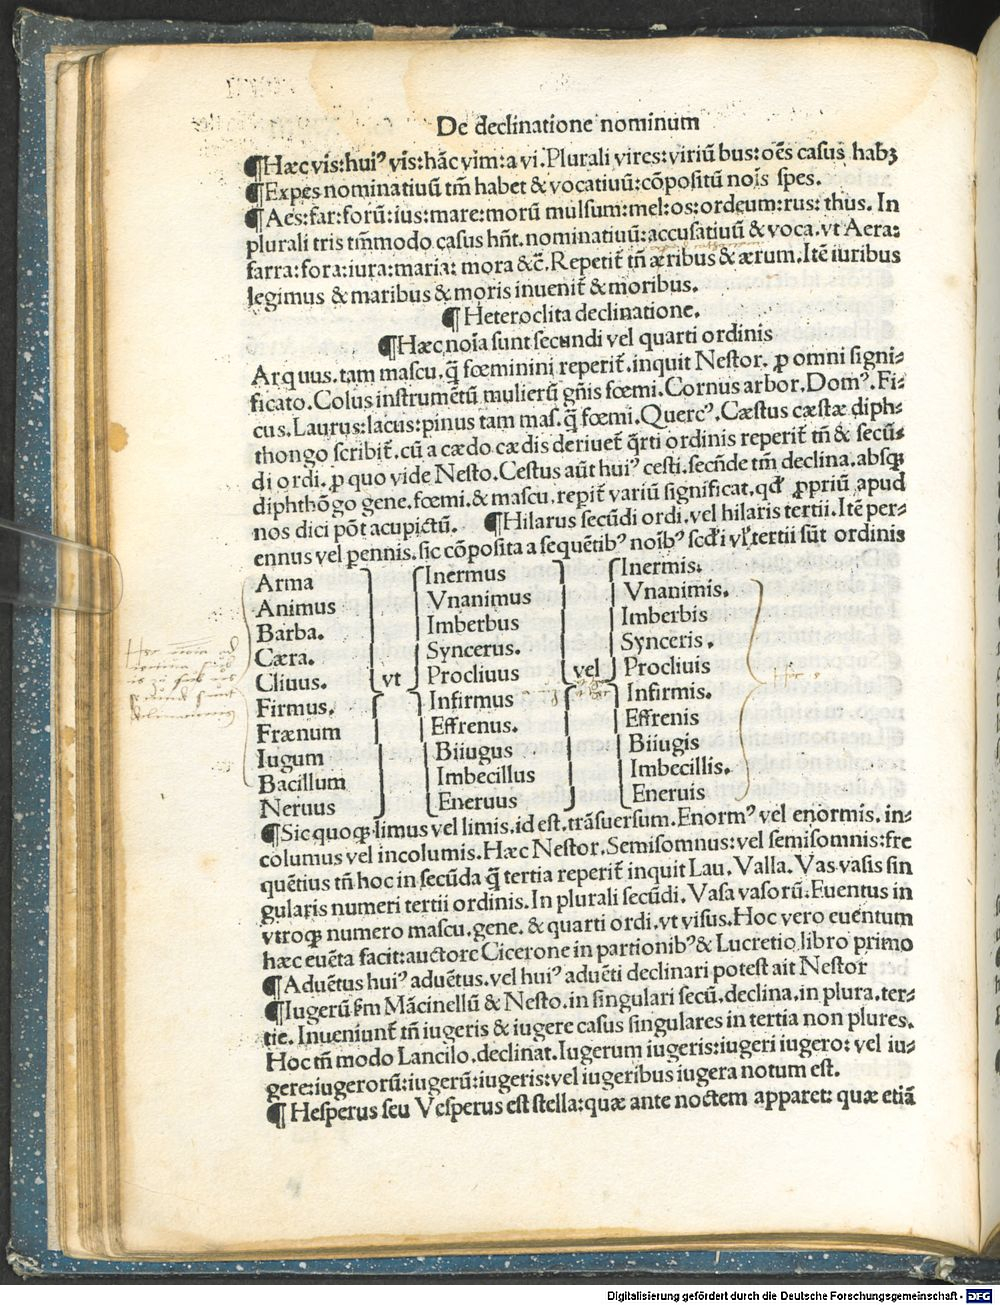 De declinatione nominum
¶Hæc vis:huiꝰ vis:hāc vim:a vi.Plurali vires:viriū bus:oēs casus habꝫ
¶Expes nominatiuū tm̄ habet & vocatiuū:cōpositū noīs spes.
¶Aes:far:forū:ius:mare:morū mulsum:mel:os:ordeum:rus:thus. In
plurali tris tm̄modo casus hn̄t.nominatiuū:accusatiuū & voca.vt Aera:
farra:fora:iura:maria: mora &c̄.Repetit̄ tn̄ æribus & ærum.Itē iuribus
legimus & maribus & moris inuenit̄ & moribus.
¶ Heteroclita declinatione.
¶Hæc noīa sunt secundi vel quarti ordinis
Arquus.tam mascu.q̄ fœminini reperit̄.inquit Nestor. ꝓ omni signi⸗
ficato.Colus instrumētū mulierū gn̄is fœmi.Cornus arbor.Domꝰ.Fi⸗
cus.Laurus:lacus:pinus tam mas.q̄ fœmi.Quercꝰ.Cæstus cæstæ diph⸗
thongo scribit̄.cū a cædo cædis deriuet̄ q̄rti ordinis reperit̄ tn̄ & secū⸗
di ordi.ꝓ quo vide Nesto.Cestus aūt huiꝰ cesti.secn̄de tm̄ declina.absqꝫ
diphthōgo gene.fœmi.& mascu.repit̄ variū significat.qđ ꝓpriū apud
nos dici pōt acupictū. ¶Hilarus secūdi ordi.vel hilaris tertii.Itē per⸗
ennus vel pennis.sic cōposita a sequētibꝰ noībꝰ secđi vł tertii sūt ordinis
Arma Inermus Inermis.
Animus Vnanimus Vnanimis.
Barba. Imberbus Imberbis
Cæra. Syncerus. Synceris.
Cliuus. vt Procliuus vel Procliuis
Firmus. Infirmus Infirmis.
Frænum Effrenus. Effrenis
Iugum Biiugus Biiugis
Bacillum Imbecillus Imbecillis.
Neruus Eneruus Eneruis
¶Sic quoqꝫ limus vel limis.id est.trāsuersum.Enormꝰ vel enormis.in⸗
columus vel incolumis.Hæc Nestor.Semisomnus:vel semisomnis:fre
quētius tn̄ hoc in secūda q̄ tertia reperit̄ inquit Lau.Valla.Vas vasis sin
gularis numeri tertii ordinis.In plurali secūdi.Vasa vasorū.Euentus in
vtroqꝫ numero mascu.gene.& quarti ordi.vt visus.Hoc vero euentum
hæc euēta facit:auctore Cicerone in partionibꝰ & Lucretio libro primo
¶Aduētus huiꝰ aduētus.vel huiꝰ aduēti declinari potest ait Nestor
¶Iugerū ẜm Mācinellū & Nesto.in singulari secū.declina.in plura.ter⸗
tie. Inueniunt̄ tn̄ iugeris & iugere casus singulares in tertia non plures.
Hoc tm̄ modo Lancilo.declinat.Iugerum iugeris:iugeri iugero: vel iu⸗
gere:iugerorū:iugerū:iugeris:vel iugeribus iugera notum est.
¶Hesperus seu Vesperus est stella:quæ ante noctem apparet: quæ etiā
Digitalisierung gefördert durch die Deutsche Forschungsgemeinschaft - DFG